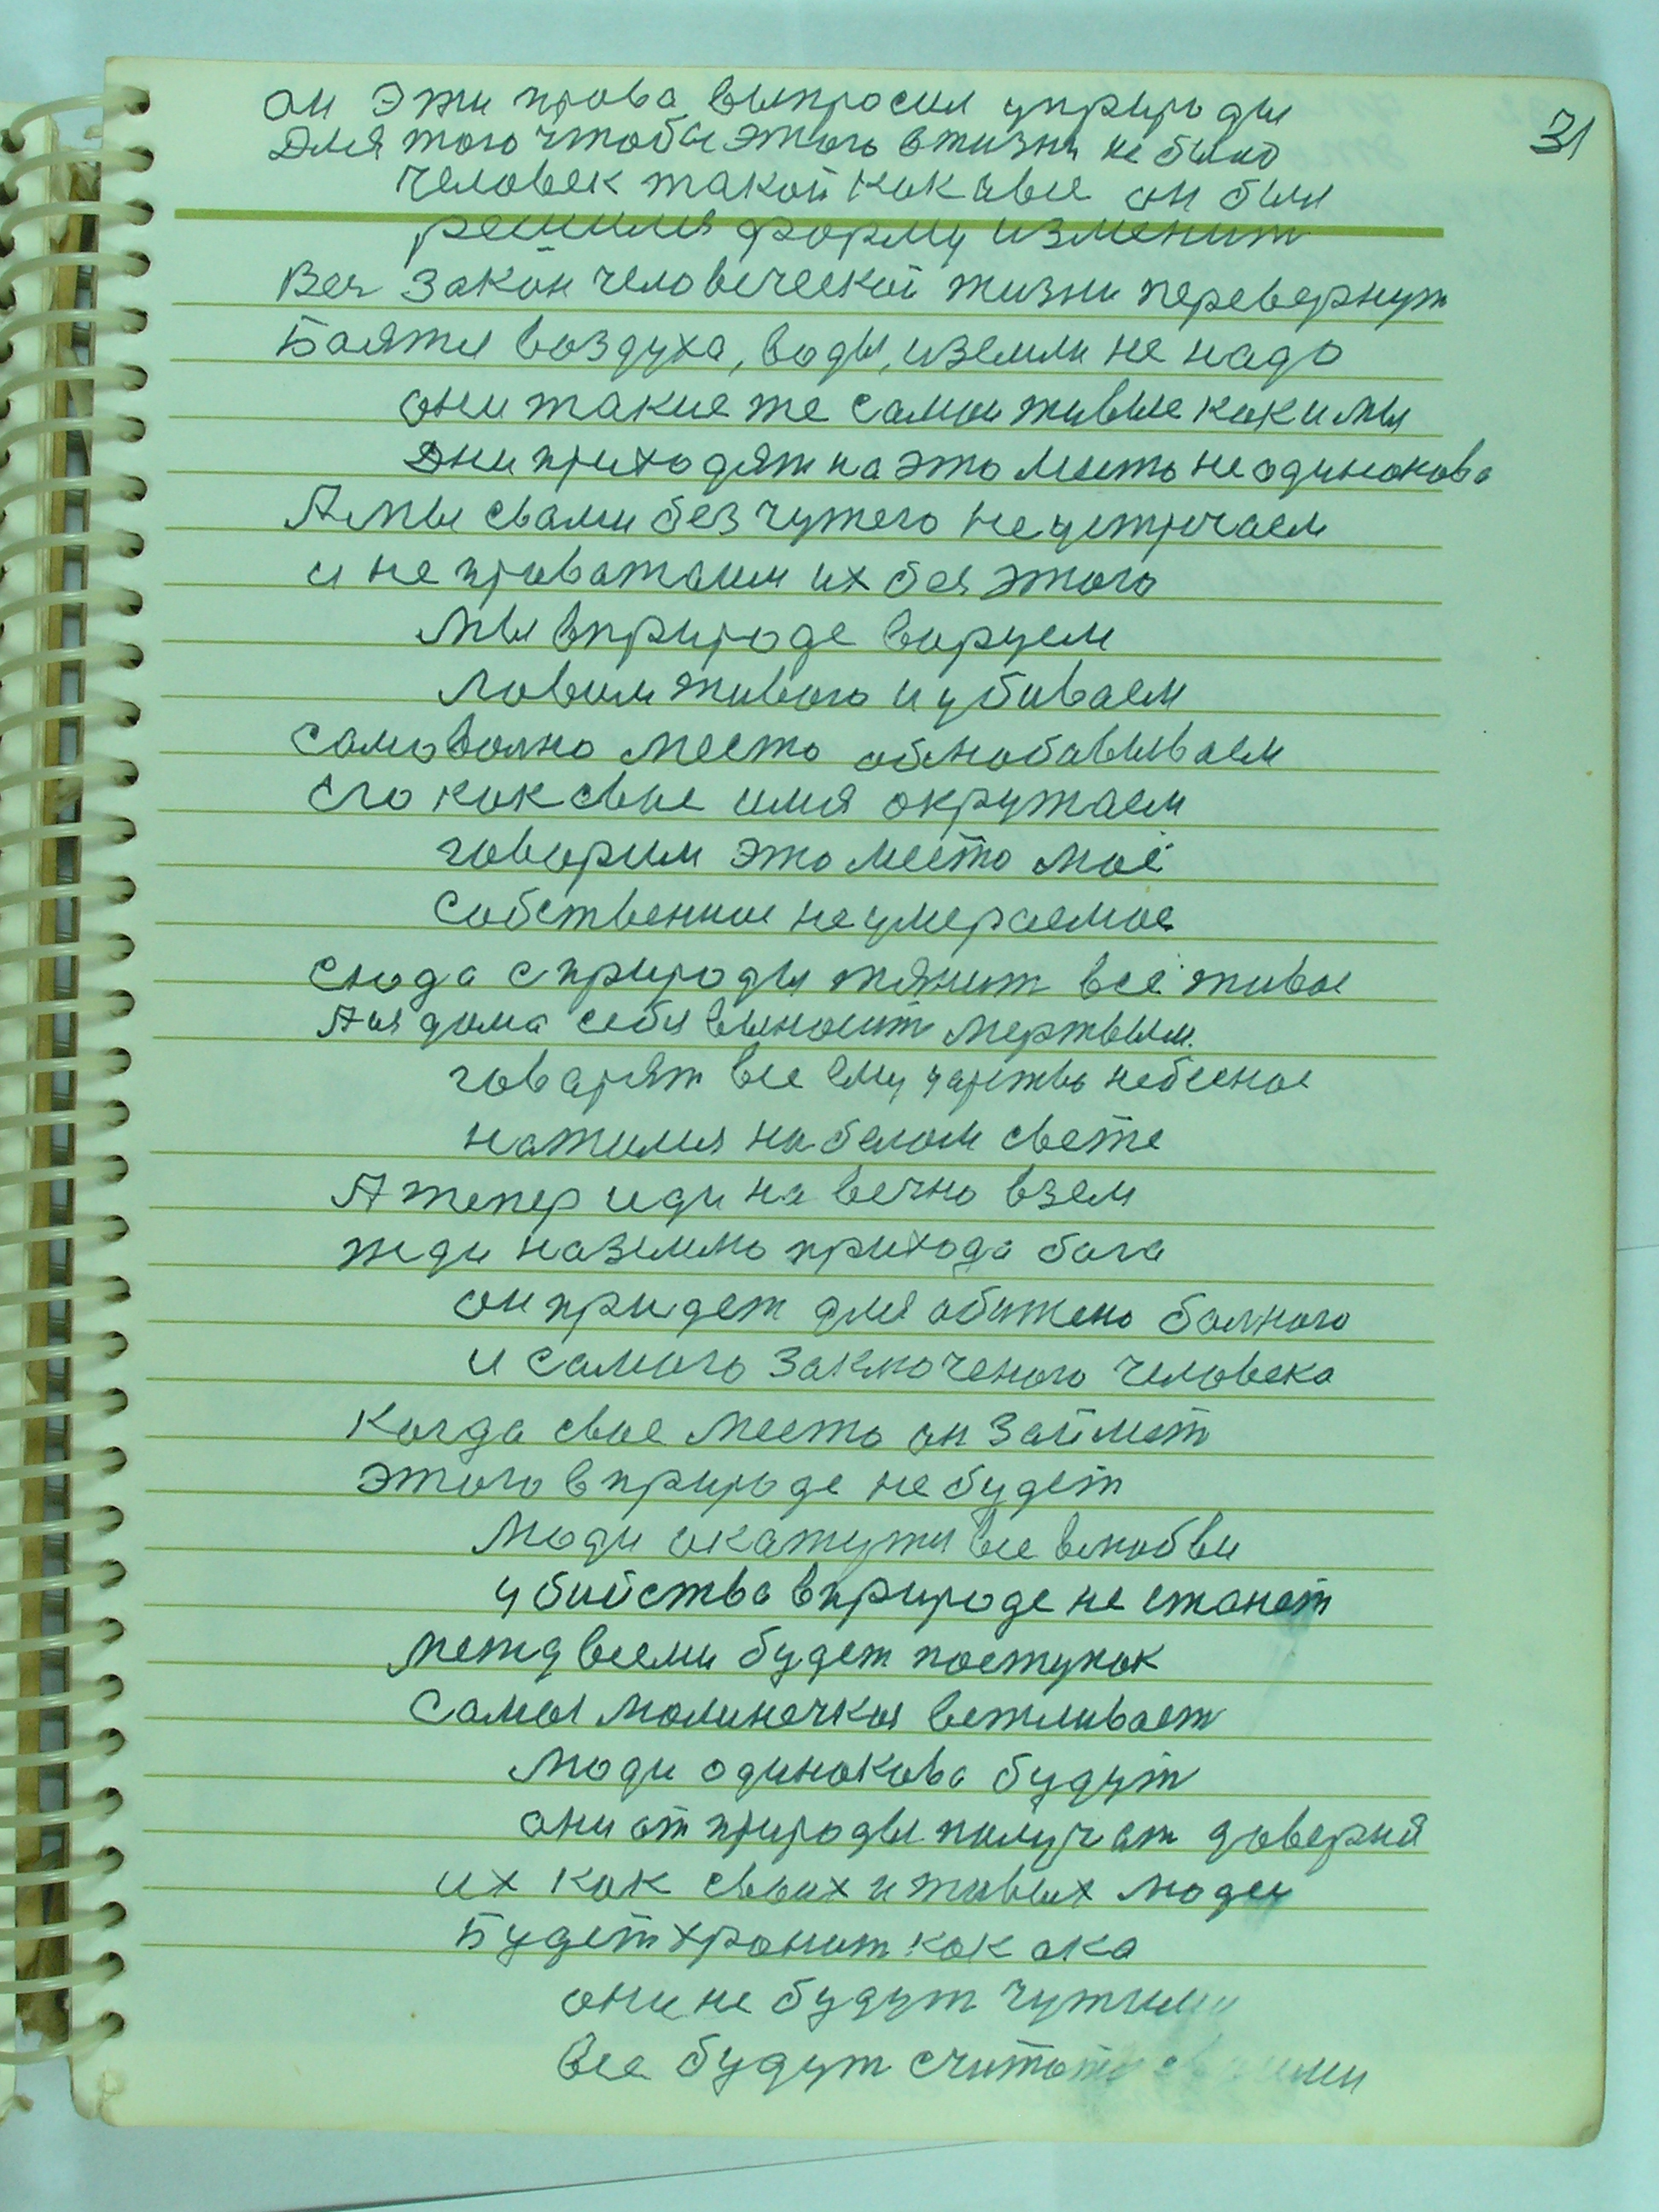 31
он эти права выпросил уприроды
Для того чтобы этого вжизни не было
человек такой как ивсе он был
решился форму изменит
Вся закон человеческой жизни перевернут
Баятся воздуха, воды, иземли не надо
они такие же самои живые как и мы
Они приходят на это место неодинокова
Амы свами без чужего неустричаем
и не проважаим их без этого
мы вприроде воруем
ловим живого и убиваем
самоволно место обнобавываем
Его как свые имя окружаем
говорим это место моё
Собственное неумераемое
Сюда сприроды тянит всё живое
Аия дома себя выносит мертвым.
говарят все ему царство небесное
нажился на белом свете
А тепер иди на вечно взем
жди наземлю прихода бога
он придет для обижено болного
и самого заключеного человека
Когда свае место он займет
этого вприроде не будет
люди окажутся все влюбви
убийства вприроде не станет
межд всеми будет поступок
Самыи малиночкия вежливает
люди одинокова будут
они от природы получат доверия
их как своих и живых людеи
Будет хронит как ока
они не будут чужими
все будут считать своими